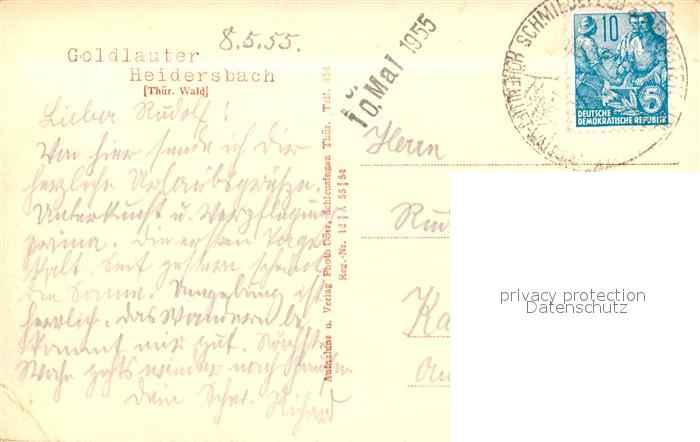 8.5.55.
Goldlauter
Heidersbach
[Thür. Wald]
Lieber Rudolf!
Von hier sende ich dir
herzliche Urlaubsgrüße.
Unterkunft u. Verpflegung
prima. Die ersten Tage
kalt. Seit gestern scheint
die Sonne. Umgebung ist
herrlich. Das Wandern be-
kommt mir gut. Nächste
Woche gehts wieder nach
Dein Schw. Richard
Aufnahme u. Verlag Photo Dörr, Schleusingen Thür. Telf. 454
Reg.-Nr. 12 | A 55 | 54
10. Mai 1955
SCHMIEDEFELD
10
5
DEUTSCHE
DEMOKRATISCHE REPUBLIK
Herrn
Rud
Ka
privacy protection
Datenschutz